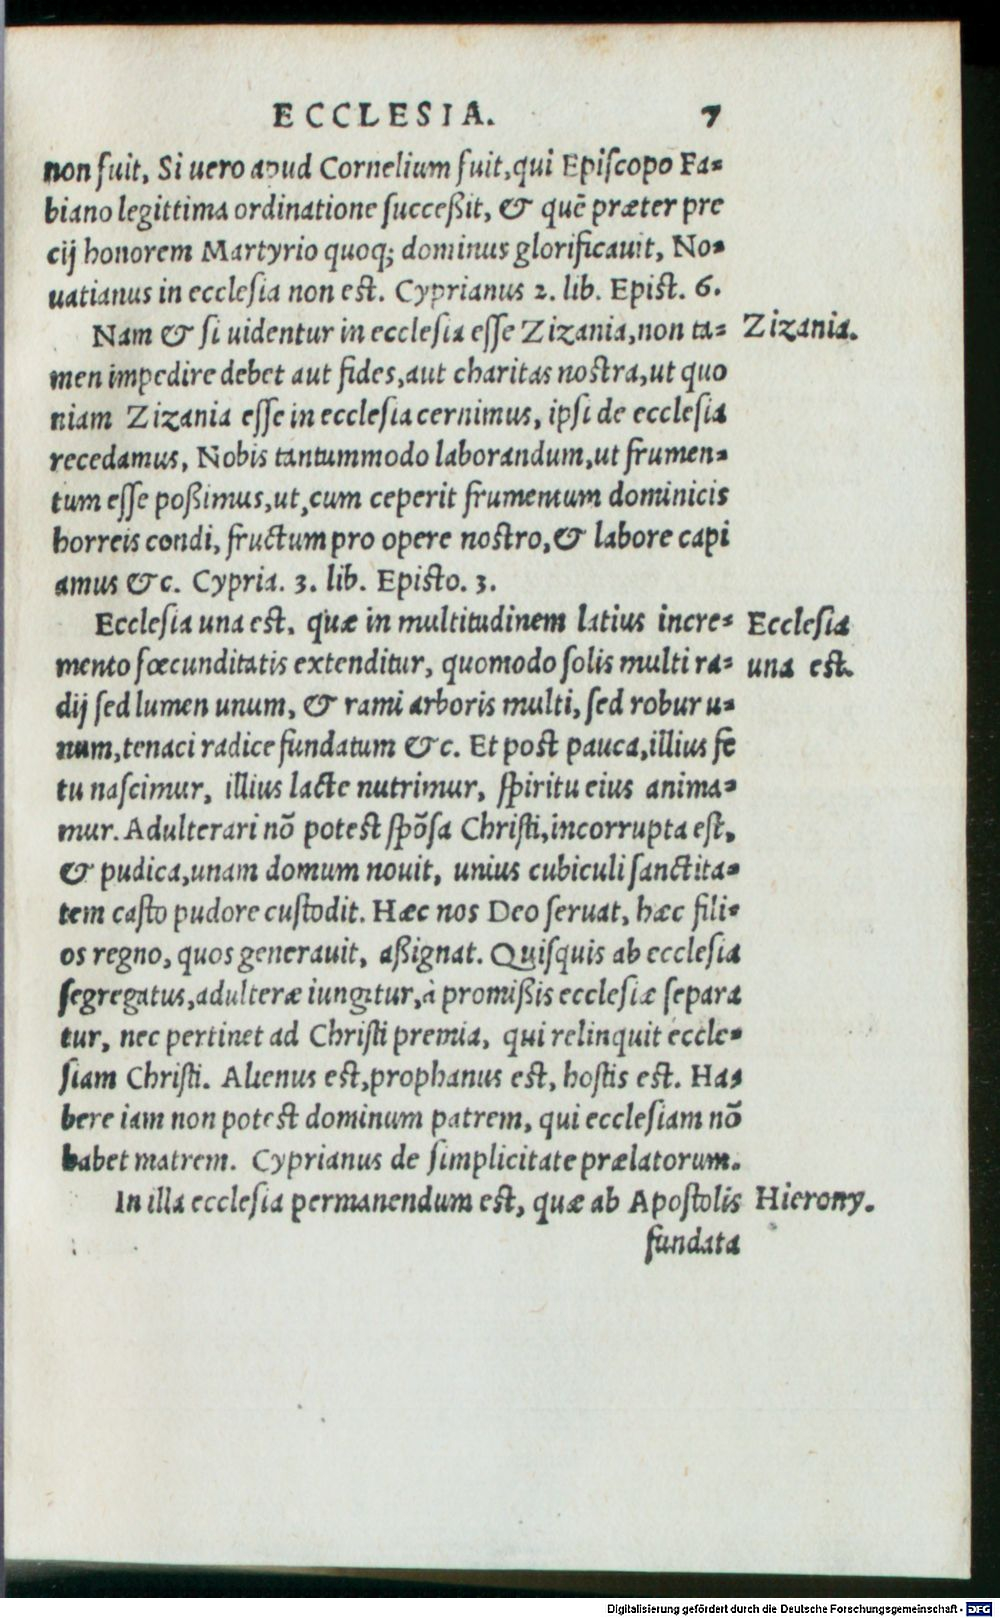 ECCLESIA. 7
non fuit, Si uero apud Cornelium fuit, qui Episcopo Fa-
biano legittima ordinatione succeßit, & quē præter pre
cij honorem Martyrio quoq; dominus glorificauit, No-
uatianus in ecclesia non est. Cyprianus 2. lib. Epist. 6.
Nam & si uidentur in ecclesia esse Zizania, non ta- Zizania.
men impedire debet aut fides, aut charitas nostra, ut quo
niam Zizania esse in ecclesia cernimus, ipsi de ecclesia
recedamus, Nobis tantummodo laborandum, ut frumen-
tum esse poßimus, ut, cum ceperit frumentum dominicis
horreis condi, fructum pro opere nostro, & labore capi
amus &c. Cypria. 3. lib. Episto. 3.
Ecclesia una est. quæ in multitudinem latius incre- Ecclesia
mento fœcunditatis extenditur, quomodo solis multi ra- una est.
dij sed lumen unum, & rami arboris multi, sed robur u-
num, tenaci radice fundatum &c. Et post pauca, illius fe
tu nascimur, illius lacte nutrimur, spiritu eius anima-
mur. Adulterari nō potest spōsa Christi, incorrupta est,
& pudica, unam domum nouit, unius cubiculi sanctita-
tem casto pudore custodit. Hæc nos Deo seruat, hæc fili-
os regno, quos generauit, aßignat. Quisquis ab ecclesia
segregatus, adulteræ iungitur, à promißis ecclesiæ separa
tur, nec pertinet ad Christi premia, qui relinquit eccle-
siam Christi. Alienus est, prophanus est, hostis est. Ha-
bere iam non potest dominum patrem, qui ecclesiam nō
habet matrem. Cyprianus de simplicitate prælatorum.
In illa ecclesia permanendum est, quæ ab Apostolis Hierony.
fundata
Digitalisierung gefördert durch die Deutsche Forschungsgemeinschaft - DFG